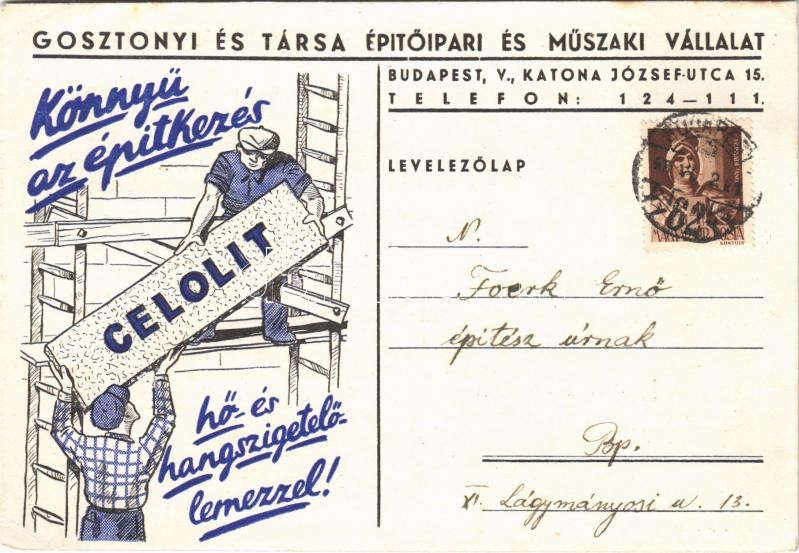 GOSZTONYI ÉS TÁRSA ÉPITŐIPARI ÉS MŰSZAKI VÁLLALAT
BUDAPEST, V., KATONA JÓZSEF-UTCA 15.
TELEFON: 124-111.
Könnyű
az építkezés
CELOLIT
hő- és
hangszigetelő-
lemezzel!
LEVELEZŐLAP
N.
Foerk Ernő
építész úrnak
Bp.
XI. Lágymányosi u. 13.